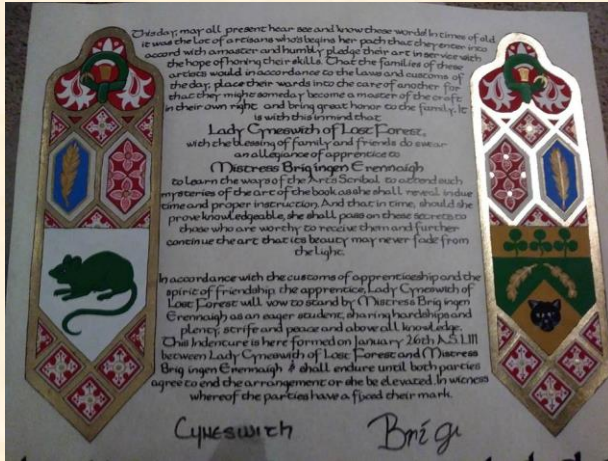 This day, may all present hear see and know these words! In times of old
it was the lot of artisans who's begins her path that they enter into
accord with a master and humbly pledge their art in service with
the hope of honing their skills. That the families of these
artists would in accordance to the laws and customs of
the day, place their wards into the care of another for
that they might someday become a master of the craft
in their own right and bring great honor to the family. It
is with this in mind that
Lady Cyneswith of Lost Forest,
with the blessing of family and friends do swear
an allegiance of apprentice to
Mistress Brig ingen Erennaigh
to learn the ways of the Arts Scribal to attend such
mysteries of the art of the book as she shall reveal in due
time and proper instruction. And that in time, should she
prove knowledgeable, she shall pass on these secrets to
those who are worthy to receive them and further
continue the art that its beauty may never fade from
the light.
In accordance with the customs of apprenticeship and the
spirit of friendship the apprentice, Lady Cyneswith of
Lost Forest will vow to stand by Mistress Brig ingen
Erennaigh as an eager student, sharing hardships and
plenty, strife and peace and above all knowledge.
This Indenture is here formed on January 26th A.S. LIII
between Lady Cyneswith of Lost Forest and Mistress
Brig ingen Erennaigh & shall endure until both parties
agree to end the arrangement or she be elevated. In witness
whereof the parties have a fixed their mark.
Cyneswith Brígi